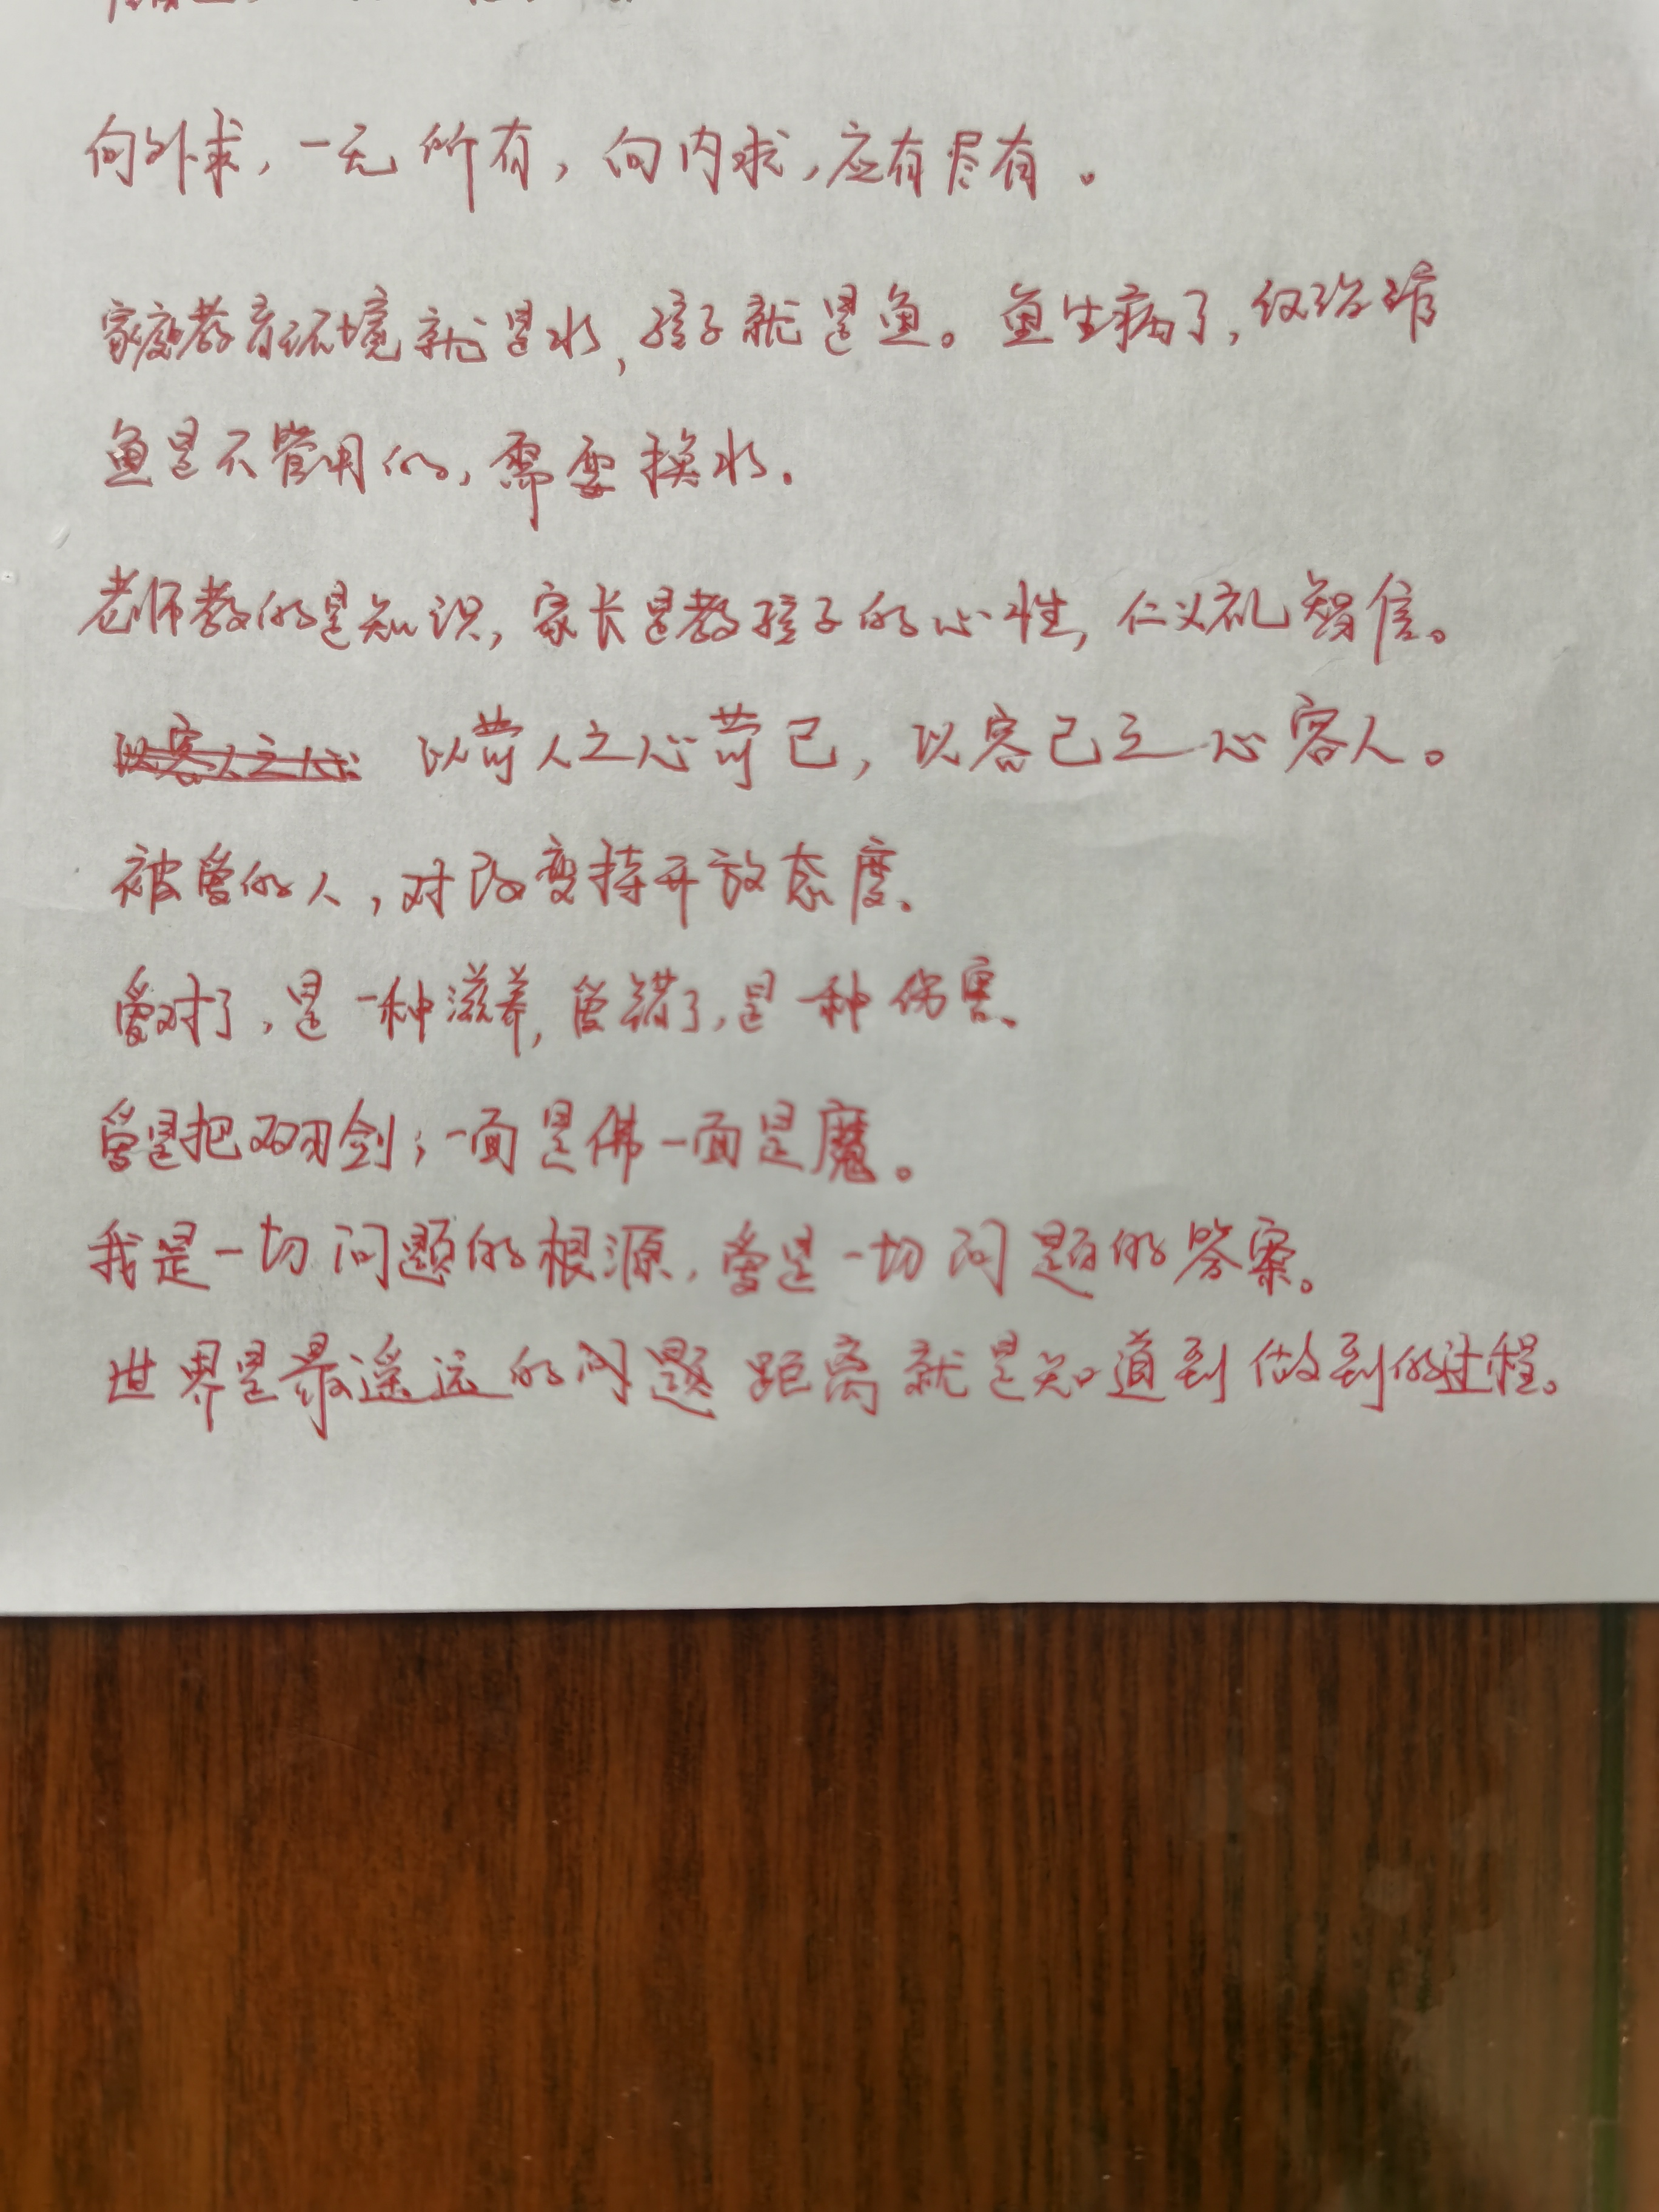 向外求，一无所有，向内求，应有尽有。
家庭教育环境就是水，孩子就是鱼。鱼生病了，仅治疗
鱼是不管用的，需要换水.
老师教的是知识，家长是教孩子的心性，仁义礼智信。
以客人之心 以苛人之心苛己，以容己之心容人。
被爱的人，对改变持开放态度。
爱对了，是一种滋养，爱错了，是一种伤害。
爱是把双刃剑；一面是佛一面是魔。
我是一切问题的根源，爱是一切问题的答案。
世界是最遥远的问题距离就是知道到做到的过程。